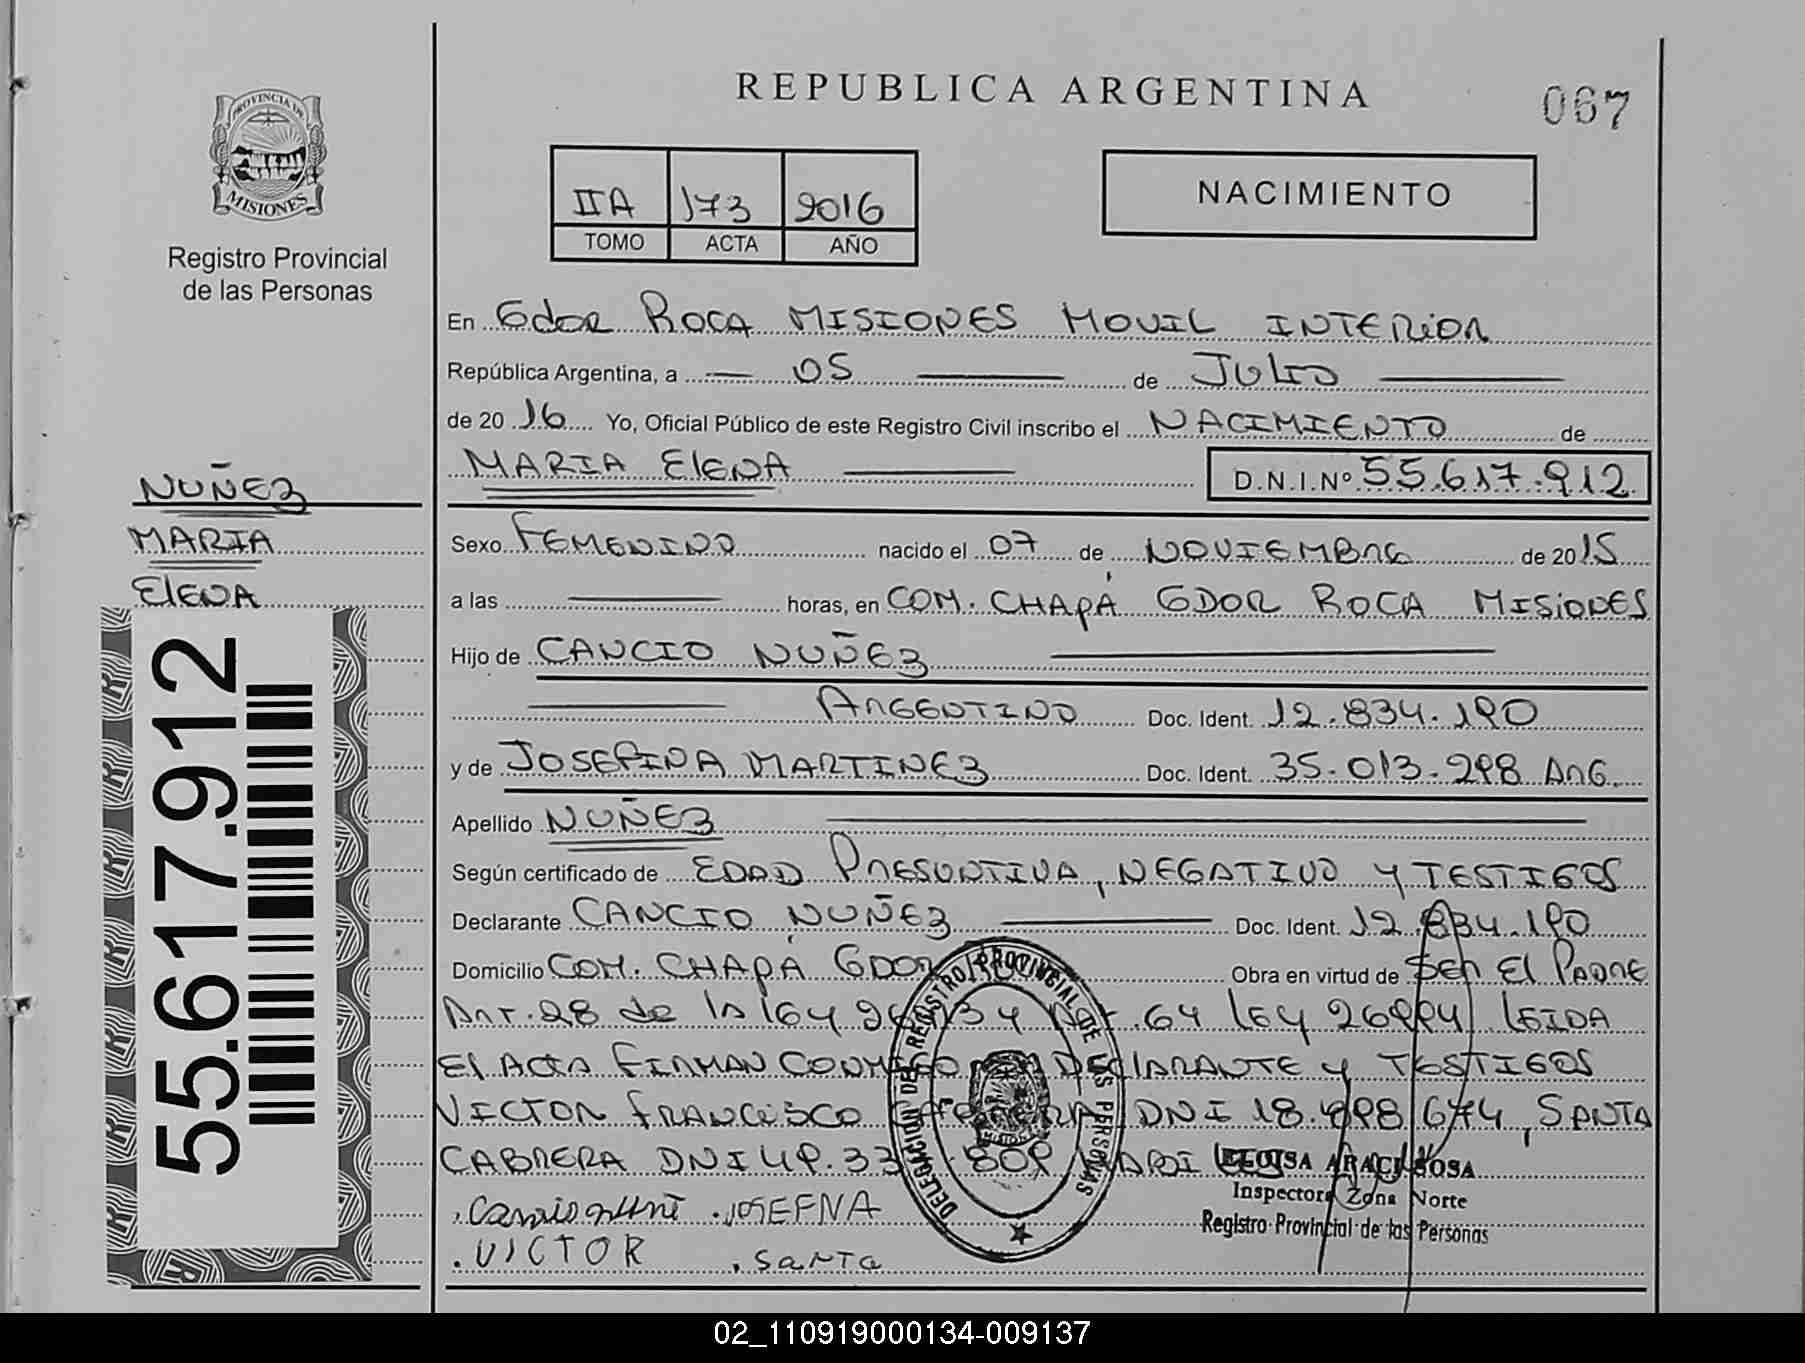 REPUBLICA ARGENTINA
067
PROVINCIA DE
MISIONES
Registro Provincial
de las Personas
IIA 173 2016
TOMO ACTA AÑO
NACIMIENTO
En Gdor ROCA MISIONES MOVIL INTERIOR
República Argentina, a 05 de JULIO
de 2016 Yo, Oficial Público de este Registro Civil inscribo el NACIMIENTO de
MARIA ELENA D.N.I.Nº 55.617.912
NUÑEZ
MARIA
ELENA
55.617.912
Sexo FEMENINO nacido el 07 de NOVIEMBRE de 2015
a las horas, en COM. CHAPÁ GDOR ROCA MISIONES
Hijo de CANCIO NUÑEZ
ARGENTINO Doc. Ident. 12.834.190
y de JOSEFINA MARTINEZ Doc. Ident. 35.013.298 ARG.
Apellido NUÑEZ
Según certificado de EDAD PRESUNTIVA, NEGATIVO Y TESTIGOS
Declarante CANCIO NUÑEZ Doc. Ident. 12.834.190
Domicilio COM. CHAPÁ GDOR Obra en virtud de SER EL PADRE
ART. 28 de la ley 64 ley 26994 LEIDA
El ACTA FIRMAN CONMIGO DECLARANTE Y TESTIGOS
VICTOR FRANCISCO DNI 18.898.674, SANTA
CABRERA DNI 49.33 809
DELEGACION DEL REGISTRO PROVINCIAL DE LAS PERSONAS
MISIONES
ELOISA ARACI SOSA
Inspectora Zona Norte
Registro Provincial de las Personas
JOSEFNA
VICTOR . SANTA
02_110919000134-009137